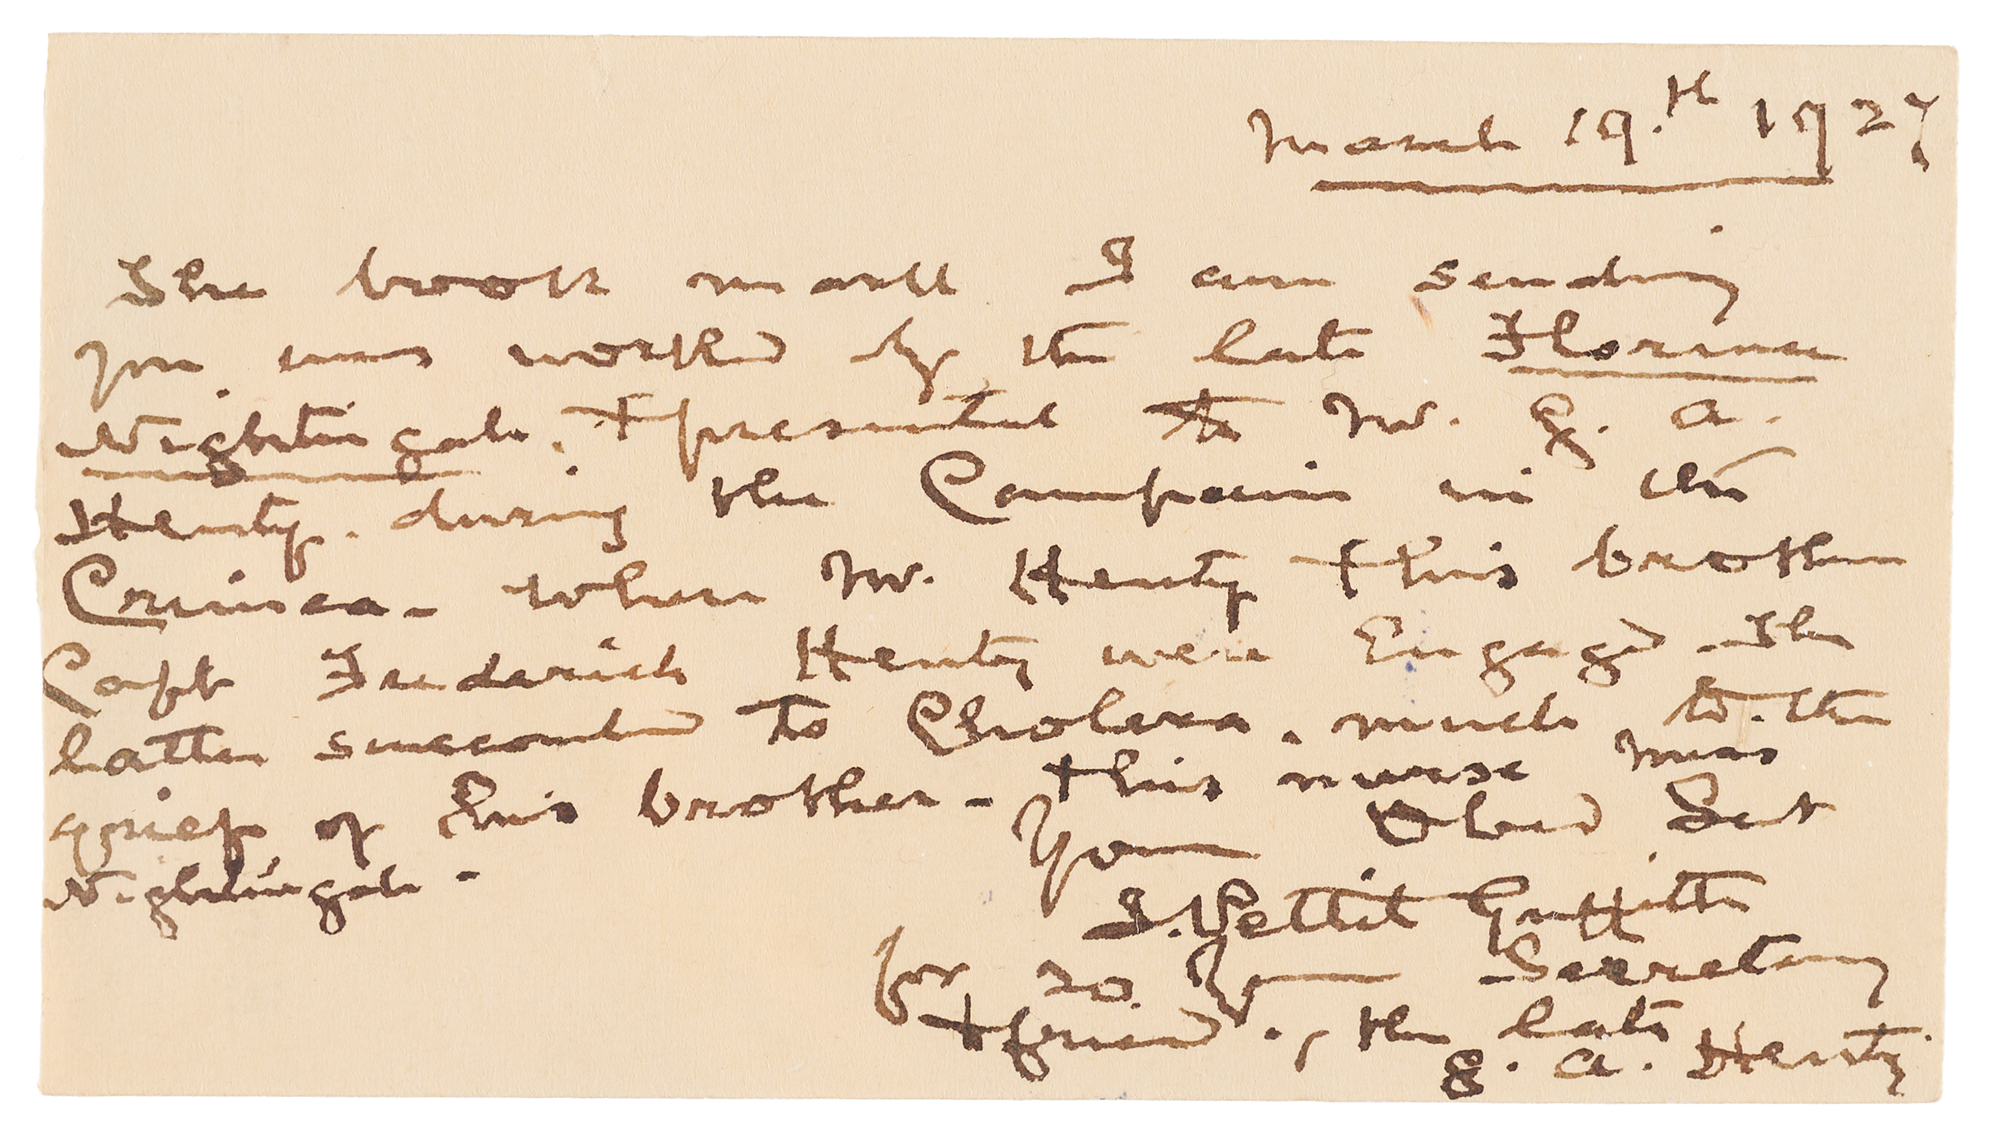 March 19.th 1927
The book mark I am sending
you was worked by the late Florence
Nightingale. & presented to Mr. G. A.
Henty. during the Campain in the
Crimea - when Mr. Henty & his brother
Capt Frederick Henty were Engaged - The
latter succombed to Cholera, much to the
grief of his brother - & his nurse Miss
Nightingale -
Your Obed Sert
J. Pettit Griffith
for 20 years Secretary
& friend of the late
G. A. Henty